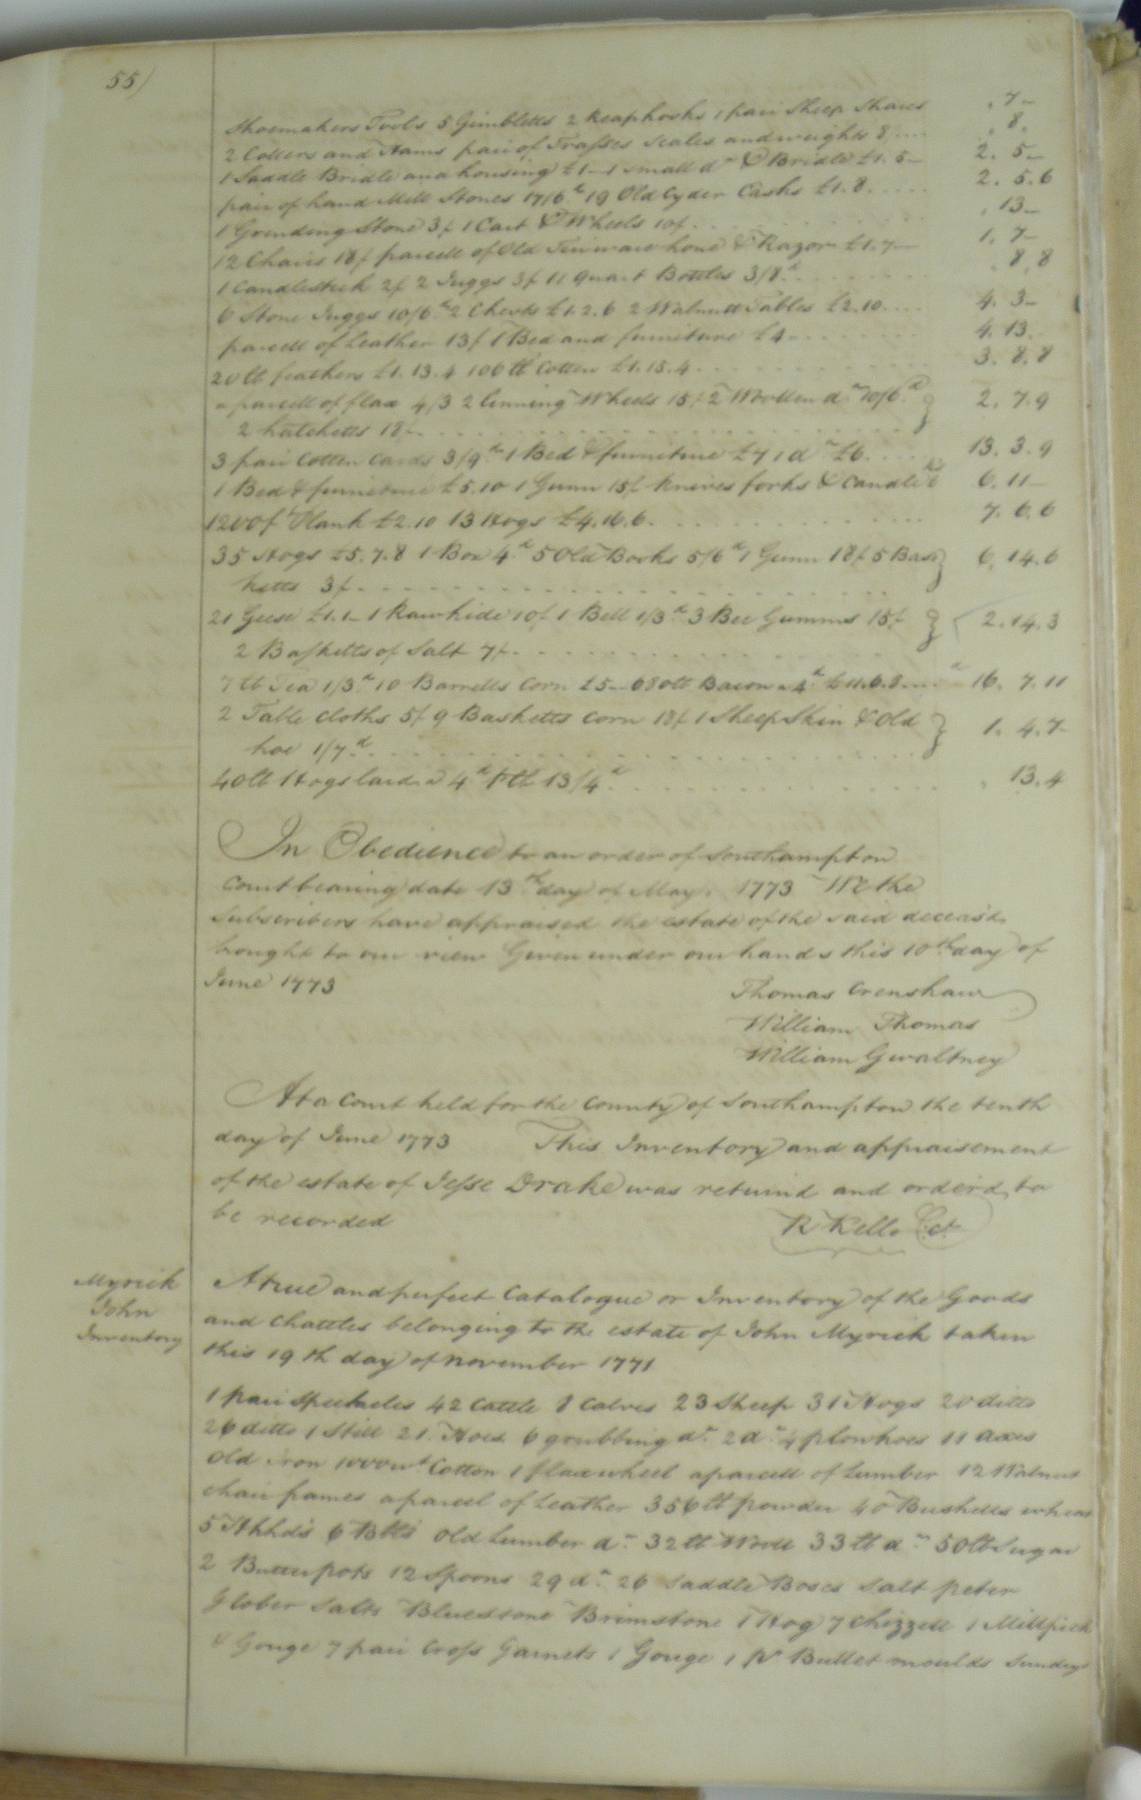 55)
Shoemakers Tools 5 Gimbletts 2 Reaphooks 1 pair Sheep Shares . 7 –
2 Collers and Hams pair of Trasses scales and weights 8 .... . 8 .
1 Saddle Bridle and housing £1–1 small do & Bridle £1.5– 2. 5–
pair of hand Mill Stones 17/6d 19 Old Cyder Casks £1.8 ..... 2. 5.6
1 Grinding Stone 3/ 1 Cart & Wheels 10/ . . . . . . . . . , 13–
12 Chairs 18/ parcell of Old Tinware hone & Razor £1.7– 1. 7–
1 Candlestick 2/ 2 Juggs 3/ 11 quart Bottles 3/8d . . . . . . . 8.8
6 Stone Juggs 10/6d 2 Chests £1.2.6 2 Walnutt Tables £2.10 .... 4. 3–
parcell of Leather 13/ 1 Bed and furniture £4 . . . . . . . 4. 13.
20 lb feathers £1.13.4 106 lb Cotton £1.15.4 . . . . . . . . . 3. 8.8
a parcell of flax 4/3 2 linning Wheels 15/ 2 Woollen do 10/6d } 2. 7.9
2 hatchetts 18/ . . . . . . . . . . . . . . . . . .
3 pair Cotton Cards 3/9d 1 Bed & furniture £7 1 do £6 ..... 13. 3. 9
1 Bed & furniture £5.10 1 Gunn 15/ knives forks & Candle 6. 11–
1200 f Plank £2.10 13 Hogs £4.16.6 . . . . . . . . . . . 7. 6.6
35 Hogs £5.7.8 1 Box 4d 5 Old Books 5/6d 1 Gunn 18/ 5 Bas } 6. 14.6
ketts 3/ . . . . . . . . . . . . . . . . . .
21 Geese £1.1– 1 Rawhide 10/ 1 Bell 1/3d 3 Bee Gumms 15/ } 2.14.3
2 Basketts of Salt 7/ . . . . . . . . . . . .
7 lb Tea 1/3d 10 Barrells Corn £5– 680lb Bacon a 4d £11.6.8 .... 16. 7. 11
2 Table Cloths 5/ 9 Basketts Corn 18/ 1 Sheep Skin & Old } 1. 4. 7–
hoe 1/7d . . . . . . . . . . . . . . . . .
40 lb Hogs lard a 4d ⅌ lb 13/4d . . . . . . . . . . . . . 13.4
In Obedience to an order of Southampton
Court bearing date 13th day of May. 1773 We the
Subscribers have appraised the estate of the said deceasd
brought to our view Given under our hands this 10th day of
June 1773
Thomas Crenshaw
William Thomas
William Gwaltney
At a Court held for the County of Southampton the tenth
day of June 1773 This Inventory and appraisement
of the estate of Jesse Drake was returnd and orderd to
be recorded
R Kello C:ct
Myrick
John
Inventory
A true and perfect Catalogue or Inventory of the Goods
and Chattles belonging to the estate of John Myrick taken
this 19th day of November 1771
1 pair Spectacles 42 Cattle 8 Calves 23 Sheep 31 Hogs 20 ditto
26 ditto 1 Still 21 Hoes 6 grubbing do 2 do 4 plowhoes 11 axes
Old iron 1000 wt Cotton 1 flaxwheel a parcell of Lumber 12 Walnut
chair frames a parcel of Leather 356 lb powder 40 Bushells wheat
5 Hhhds 6 Bbls Old Lumber do 32 lb Wooll 33 lb do 50 lb Sugar
2 Butter pots 12 Spoons 29 do 26 Saddle Boses Salt peter
Glober Salts Bluestone Brimstone 1 Hog 7 Chizzell 1 Millpick
& Gouge 7 pair Cross Garnets 1 Gouge 1 pr Bullet moulds Sundry